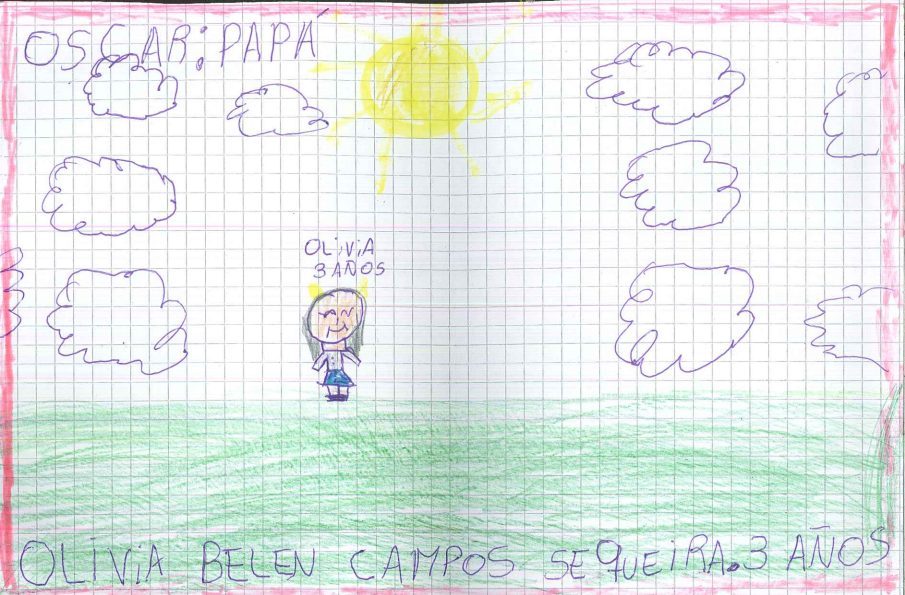 OSCAR: PAPÁ
OLiViA
3 AÑOS
OLiViA BELEN CAMPOS SEQUEiRA. 3 AÑOS